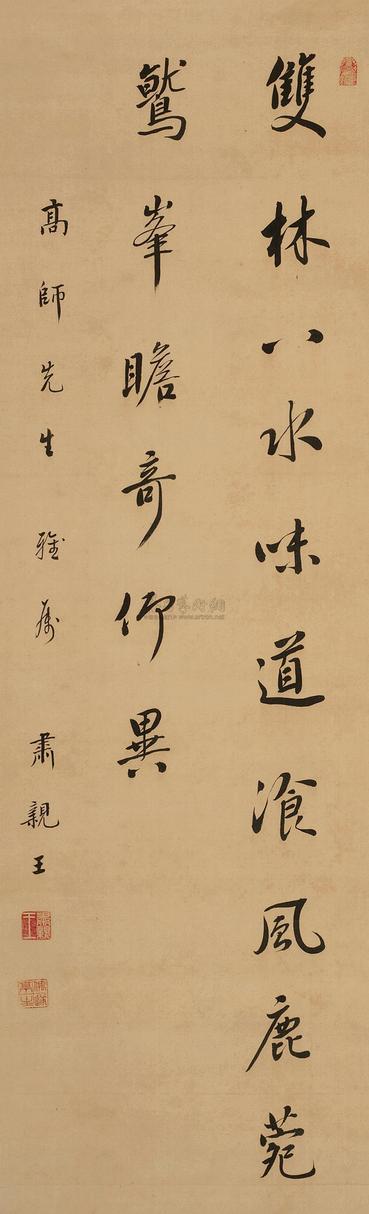 雙林八水味道飡風鹿菀
鷲峯瞻奇仰異
高師先生雅屬 肅親王